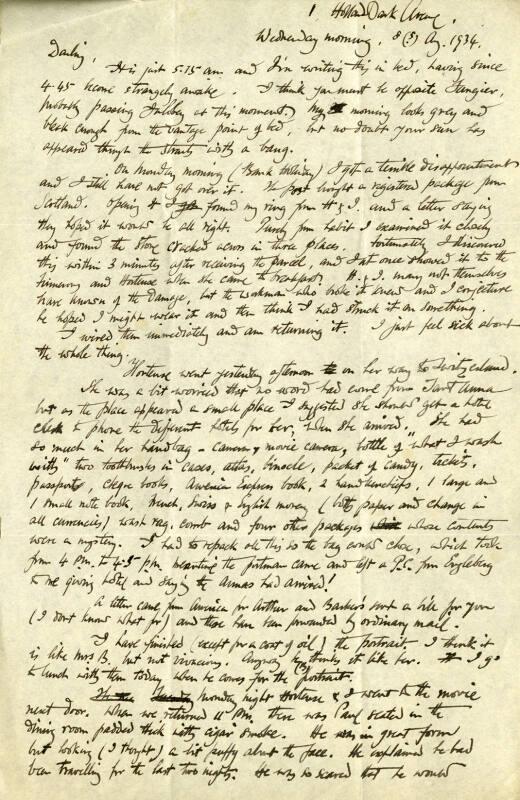 1 Holland Park Avenue,
Wednesday morning, 8 (?) Aug. 1934.
Darling,
It is just 5.15 am and I'm writing this in bed, having since
4.45 become strangely awake. I think you must be opposite Tangier,
probably passing at this moment. My morning looks grey and
bleak enough from the vantage point of bed, but no doubt your sun has
appeared through the straits with a bang.
On Monday morning (Bank Holiday) I got a terrible disappointment
and I still have not got over it. The post brought a registered package from
Scotland. Opening it I found my ring from H & I. and a letter saying
they hoped it would be all right. Purely from habit I examined it closely
and found the stone cracked across in three places. Fortunately I discovered
this within 3 minutes after receiving the parcel, and at once showed it to the
and Hortense when she came to breakfast. H. & I. may not themselves
have known of the damage, but the workman who broke it knew and I conjecture
he hoped I might wear it and then think I had struck it on something.
I wired them immediately and am returning it. I just feel sick about
the whole thing.
Hortense went yesterday afternoon on her way to Switzerland.
She was a bit worried that no word had come from Tant Anna
but as the place appeared a small place I suggested she should get a hotel
clerk to phone the different hotels for her, when she arrived. She had
so much in her handbag - camera, movie camera, bottle of "what I wash
with" two toothbrushes in cases, atlas, binocle, packet of candy, tickets,
passports, cheque books, American Express book, 2 handkerchiefs, 1 large and
1 small note book, French, Swiss & English money (both paper and change in
all currencies) wash rag, comb and four other packages whose contents
were a mystery. I had to repack all this so the bag would close, which took
from 4 PM. to 4.45 pm. Meantime the postman came and left a P.C. from Engleberg
to me giving hotel and saying the Annas had arrived!
A letter came from America for Arthur and Barkers sent a bill for you
(I don't know what for) and these have been forwarded by ordinary mail.
I have finished (except for a coat of oil) the portrait. I think it
is like Mrs B. but not vivacious. Anyway he thinks it like her. I go
to lunch with them today when he comes for the portrait.
Monday night Hortense & I went to the movie
next door. When we returned 11 PM. there was Paul seated in the
dining room padded thick with cigar smoke. He was in great form
but looking (I thought) a bit puffy about the face. He explained he had
been travelling for the last two nights. He was so scared that he would